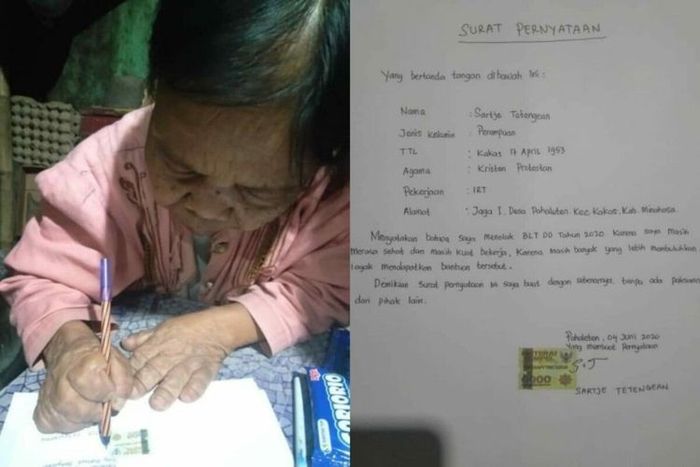 SURAT PERNYATAAN
Yang bertanda tangan dibawah Ini :
Nama : Sartje Tetengean
Jenis Kelamin : Perempuan
TTL : Kakas 17 April 1953
Agama : Kristen Protestan
Pekerjaan : IRT
Alamat : Jaga I. Desa Pahaleten. Kec Kakas. Kab. Minahasa
Menyatakan bahwa saya menolak BLT DD Tahun 2020 Karena saya masih
merasa sehat dan masih kuat bekerja, Karena masih banyak yang lebih membutuhkan
layak mendapatkan bantuan tersebut.
Demikian Surat pernyataan ini saya buat dengan sebenarnya, tanpa ada paksaan
dari pihak lain.
Pahaleten, 04 Juni 2020
Yang membuat Pernyataan
S.T
6000
SARTJE TETENGEAN